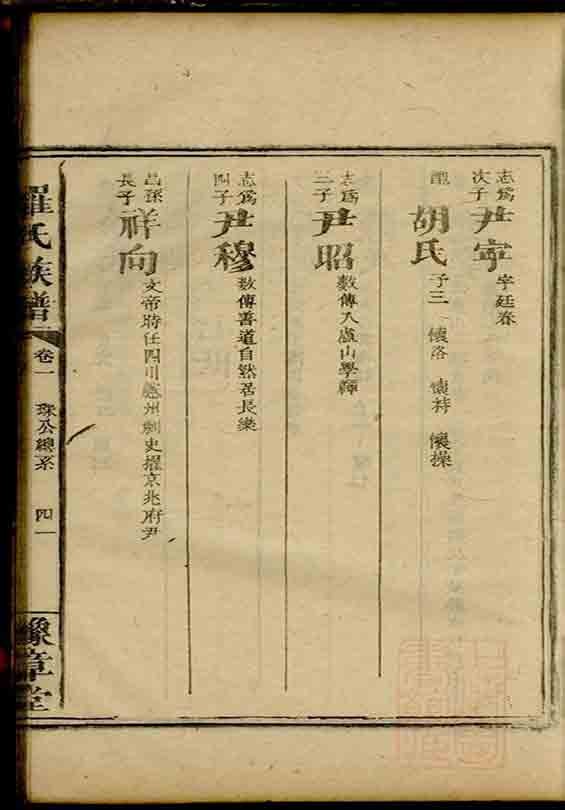 志爲次子尹寜字廷春
配胡氏子三 懷洛 懷特 懷操
志爲三子尹昭數傳入盧山學釋
志爲四子尹穆數傳善道自然居長樂
昌孫長子祥向文帝時任四川州刺史擢京兆府尹
羅氏族譜 卷一 珠公總系 四一 豫章堂